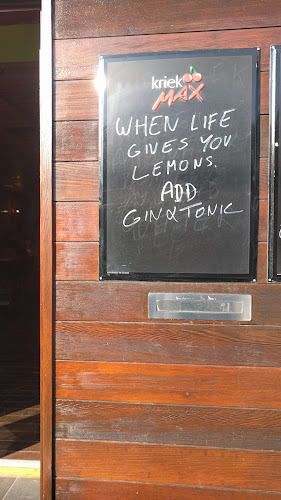 kriek
MAX
WHEN LIFE
GIVES YOU
LEMONS.
ADD
GIN & TONIC